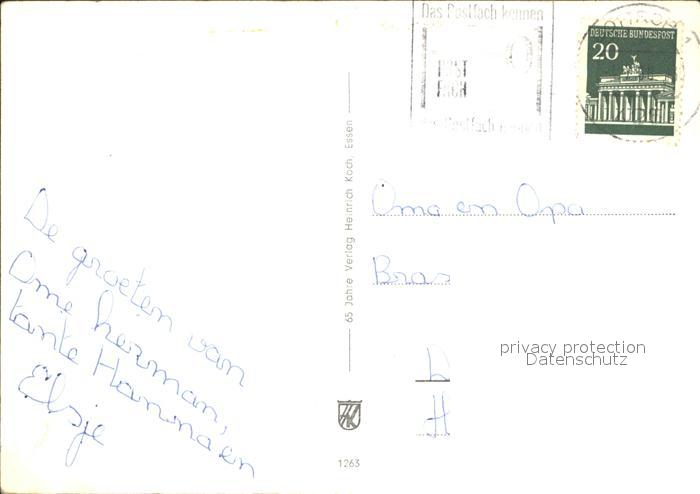 Das Postfach kennen
POST
FACH
Das Postfach kennen
DEUTSCHE BUNDESPOST
20
De groeten van
Ome herman,
tante Hanna en
Elsje
65 Jahre Verlag Heinrich Koch, Essen
HK
1263
Oma en Opa
Bras
privacy protection
Datenschutz
H